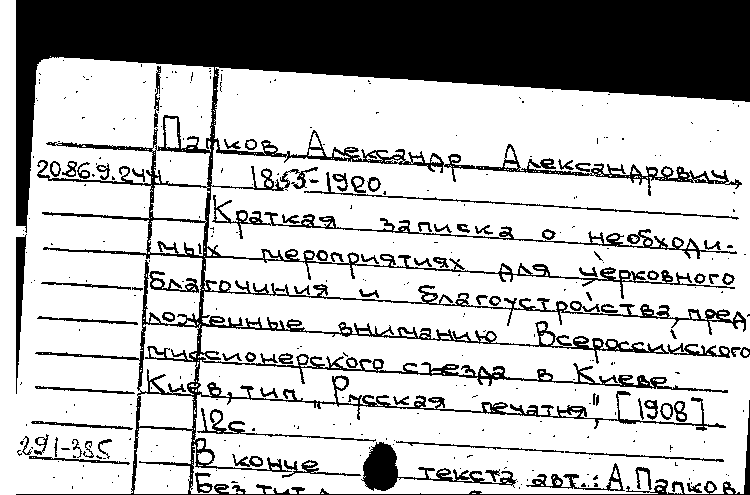 Папков, Александр Александрович,
20.86.9.244. 1855-1920.
Краткая записка о необходи-
мых мероприятиях для церковного
благочиния и благоустройства, пред-
ложенные вниманию Всероссийского
миссионерского съезда в Киеве.
Киев, тип. "Русская печатня", [1908].
12с.
291-385
В конце текста авт.: А. Папков.
Без тит.